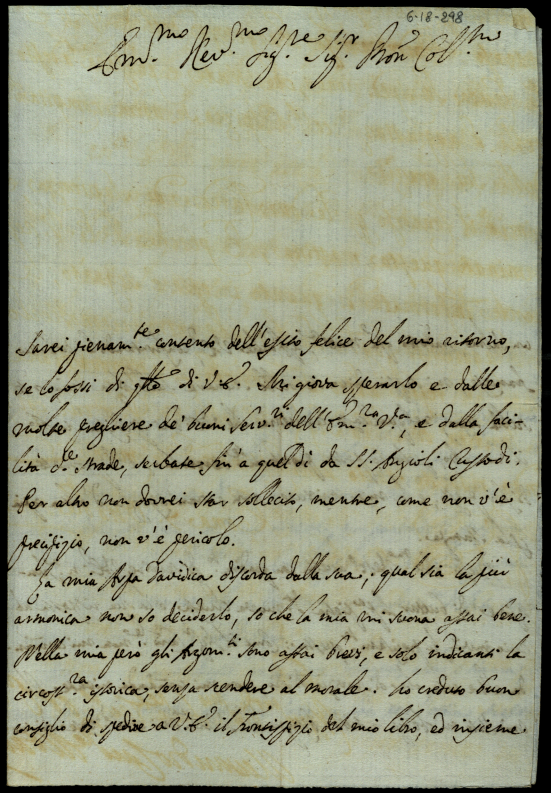 6-18-298
Em.mo Rev.mo Sig.re Sig.r Pron Col.mo
Sarei pienam.te contento dell'esito felice del mio ritorno,
se lo fossi di q.tto di V.E. Mi giova sperarlo e dalle
molte preghiere de' buoni Serv.ri dell'Em.za V.ra, e dalla faci-
lità d.e strade, serbate sin a quel dì da SS. Angioli Custodi.
Per altro non dovrei star sollecito, mentre, come non v'è
precipizio, non v'è pericolo.
La mia Arpa Davidica discorda dalla sua; qual sia la più
armonica non so deciderlo, so che la mia mi suona assai bene.
Nella mia però gli Argom.ti sono assai brevi, e solo indicanti la
circost.za istorica, senza scendere al morale. ho creduto buon
consiglio di spedire a V.E. il Frontispizio del mio libro, ed insieme